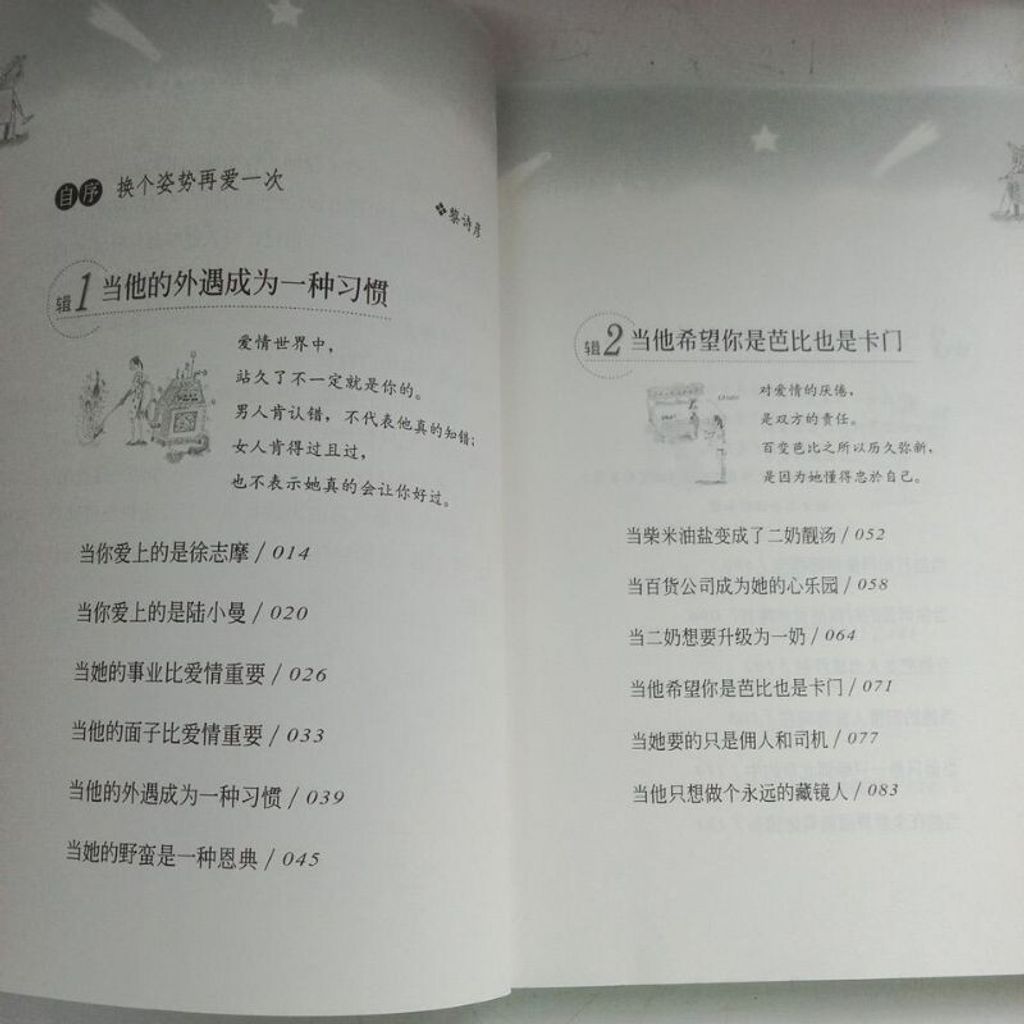 自序 换个姿势再爱一次
❖黎诗彦
辑1 当他的外遇成为一种习惯
爱情世界中，
站久了不一定就是你的。
男人肯认错，不代表他真的知错；
女人肯得过且过，
也不表示她真的会让你好过。
当你爱上的是徐志摩 / 014
当你爱上的是陆小曼 / 020
当她的事业比爱情重要 / 026
当他的面子比爱情重要 / 033
当他的外遇成为一种习惯 / 039
当她的野蛮是一种恩典 / 045
辑2 当他希望你是芭比也是卡门
对爱情的厌倦，
是双方的责任。
百变芭比之所以历久弥新，
是因为她懂得忠於自己。
当柴米油盐变成了二奶靓汤 / 052
当百货公司成为她的心乐园 / 058
当二奶想要升级为一奶 / 064
当他希望你是芭比也是卡门 / 071
当她要的只是佣人和司机 / 077
当他只想做个永远的藏镜人 / 083